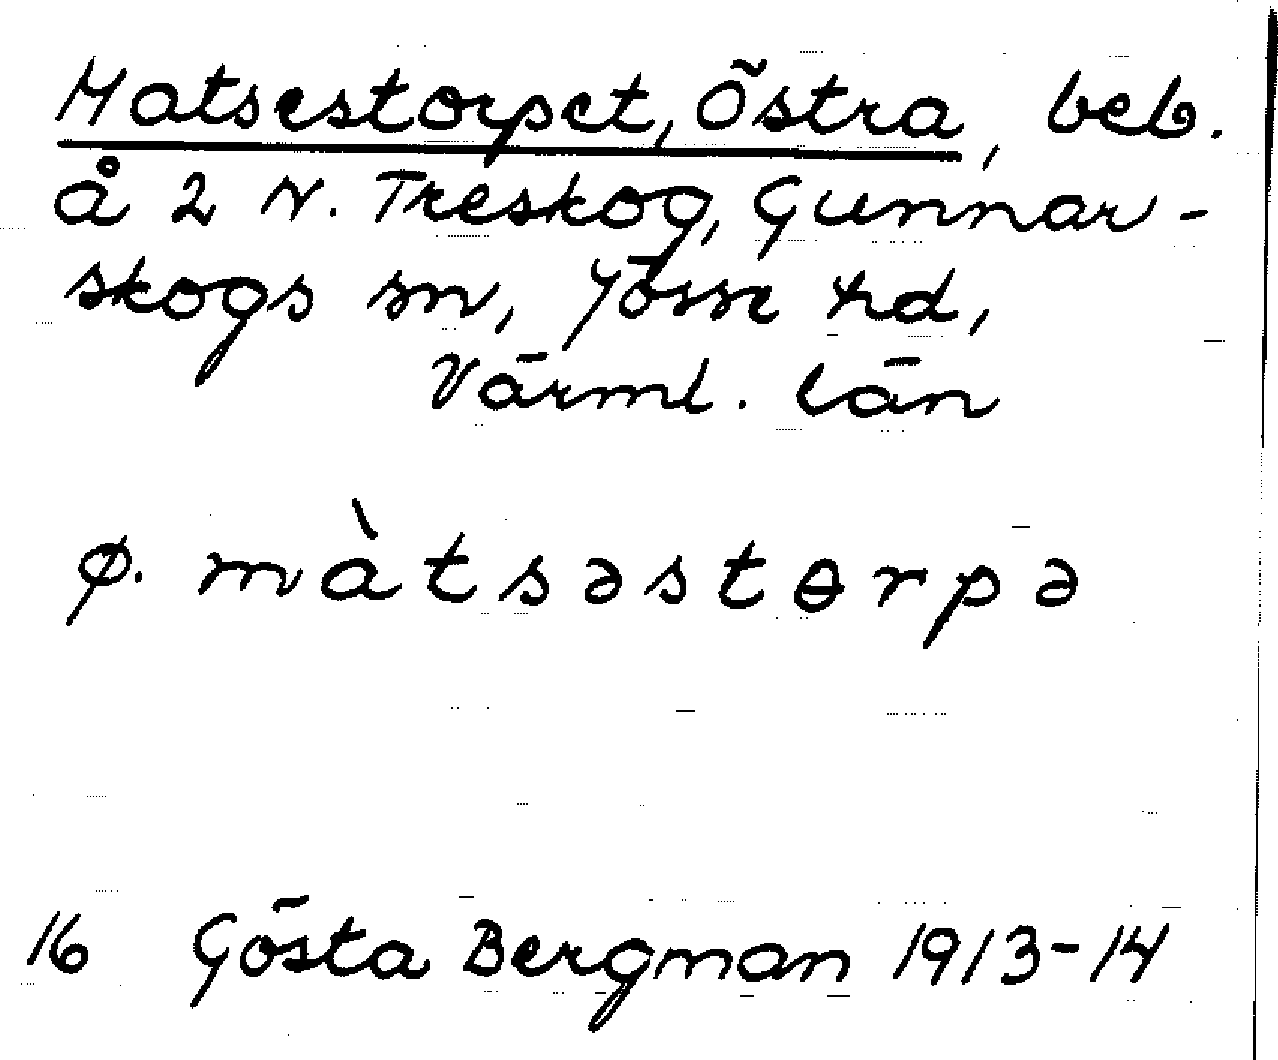 Matsestorpet, Östra, beb.
å 2 N. Treskog, Gunnar-
skogs sn, Jösse hd,
Värml. län
ø. màtsəstɵrpə
16 Gösta Bergman 1913-14